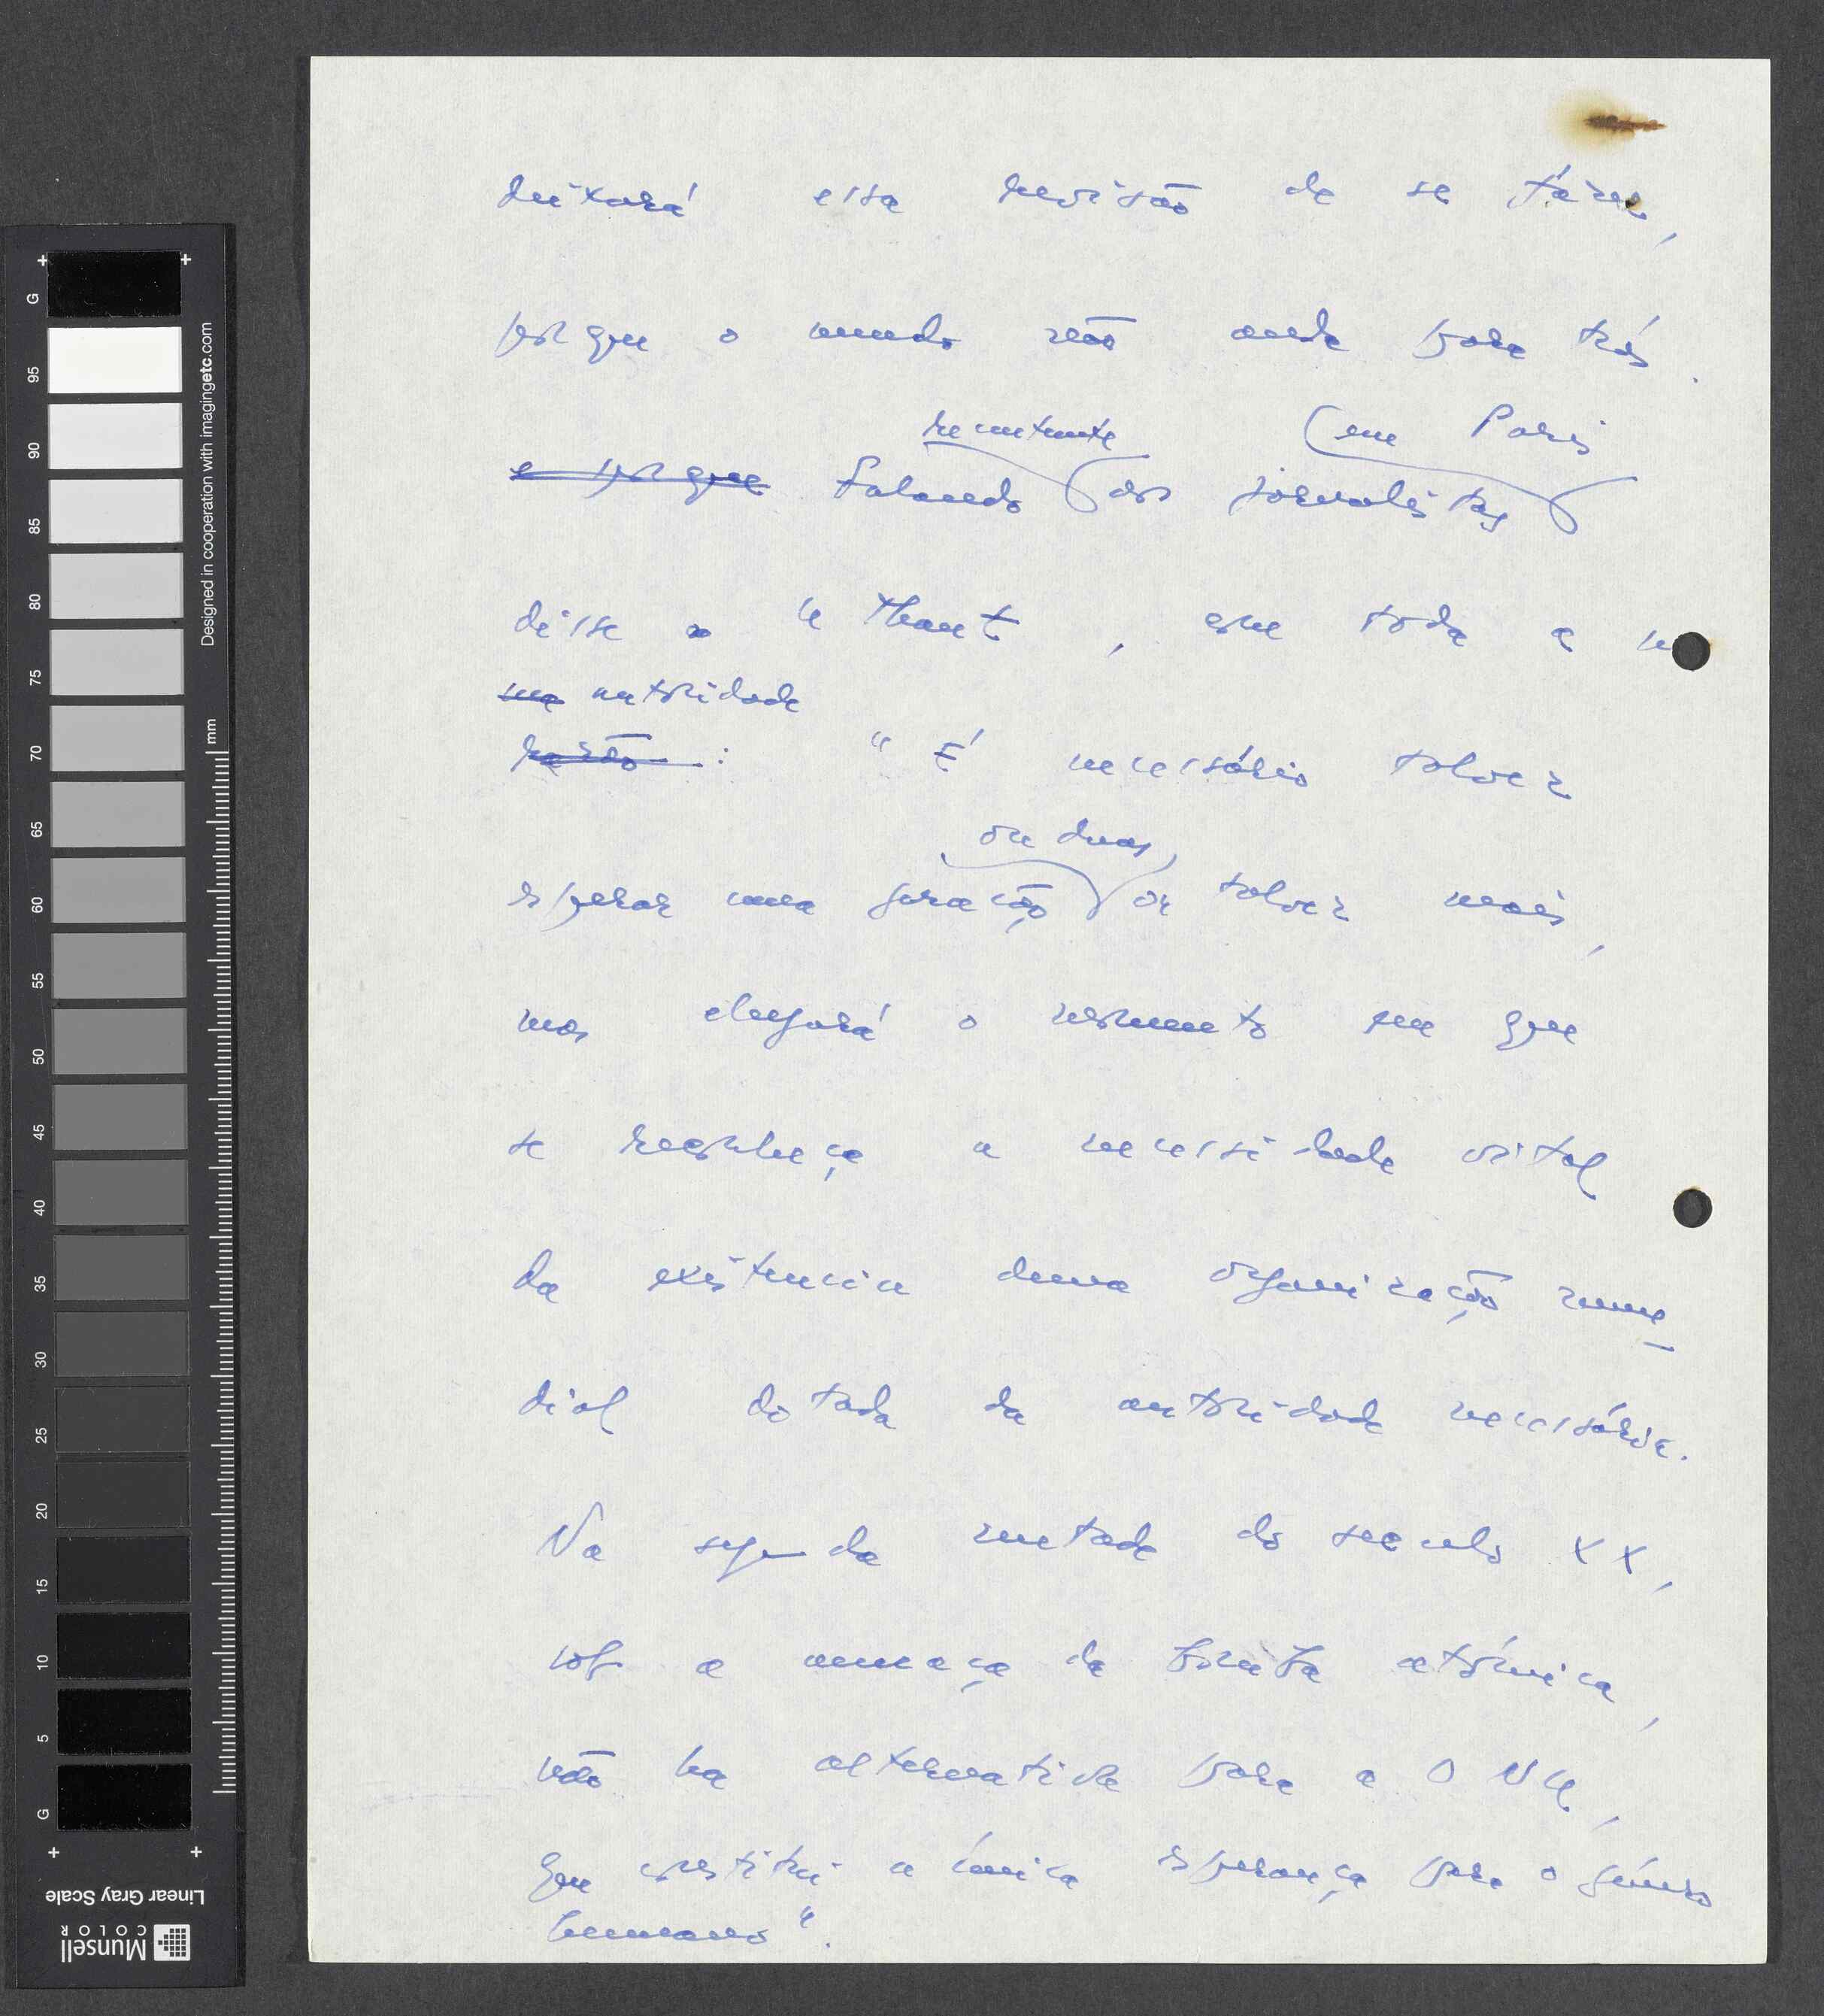 deixará essa revisão de se fázer,
porque o mundo não anda para trás.
recentemente (em Paris
e porque Falando aos jornalistas
disse o U Thant, com toda a
sua autoridade
razão : "É necessário talvez
ou duas,
esperar uma geração ou talvez mais,
mas chegará o momento em que
se reconheça a necessidade vital
da existencia duma organização mun-
dial dotada da autoridade necessária.
Na segunda metade do seculo XX,
sob a ameaça da bomba atómica,
não ha alternativa para a ONU,
que constitui a única esperança para o género
humano".
G
95
90
85
80
75
70
65
60
55
50
45
40
35
30
25
20
15
10
5
G
mm
Designed in cooperation with imagingetc.com
Linear Gray Scale
Munsell
COLOR